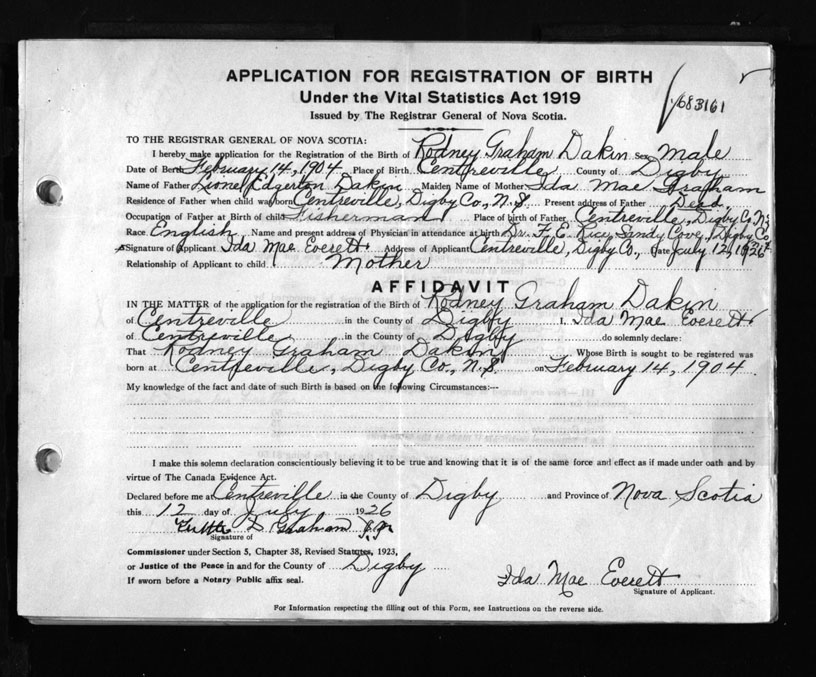 APPLICATION FOR REGISTRATION OF BIRTH
Under the Vital Statistics Act 1919
683161
Issued by The Registrar General of Nova Scotia.
TO THE REGISTRAR GENERAL OF NOVA SCOTIA:
I hereby make application for the Registration of the Birth of Rodney Graham Dakin Sex Male
Date of Birth February 14, 1904 Place of Birth Centreville County of Digby
Name of Father Lionel Edgerton Dakin Maiden Name of Mother Ida Mae Graham
Residence of Father when child was born Centreville, Digby Co., N.S. Present address of Father Dead
Occupation of Father at Birth of child Fisherman Place of birth of Father Centreville, Digby Co. N.S.
Race English Name and present address of Physician in attendance at birth Dr. F. E. Rice, Sandy Cove, Digby Co.
Signature of Applicant Ida Mae Everett Address of Applicant Centreville, Digby Co., Date July 12, 1926
Relationship of Applicant to child Mother
AFFIDAVIT
IN THE MATTER of the application for the registration of the Birth of Rodney Graham Dakin
of Centreville in the County of Digby I, Ida Mae Everett
of Centreville in the County of Digby do solemnly declare:
That Rodney Graham Dakin Whose Birth is sought to be registered was
born at Centreville, Digby Co., N.S. on February 14, 1904.
My knowledge of the fact and date of such Birth is based on the following Circumstances:—
I make this solemn declaration conscientiously believing it to be true and knowing that it is of the same force and effect as if made under oath and by
virtue of The Canada Evidence Act.
Declared before me at Centreville in the County of Digby and Province of Nova Scotia
this 12 day of July 1926
Graham J.P.
Signature of
Commissioner under Section 5, Chapter 38, Revised Statutes, 1923,
or Justice of the Peace in and for the County of Digby
If sworn before a Notary Public affix seal.
Ida Mae Everett
Signature of Applicant.
For Information respecting the filling out of this Form, see Instructions on the reverse side.